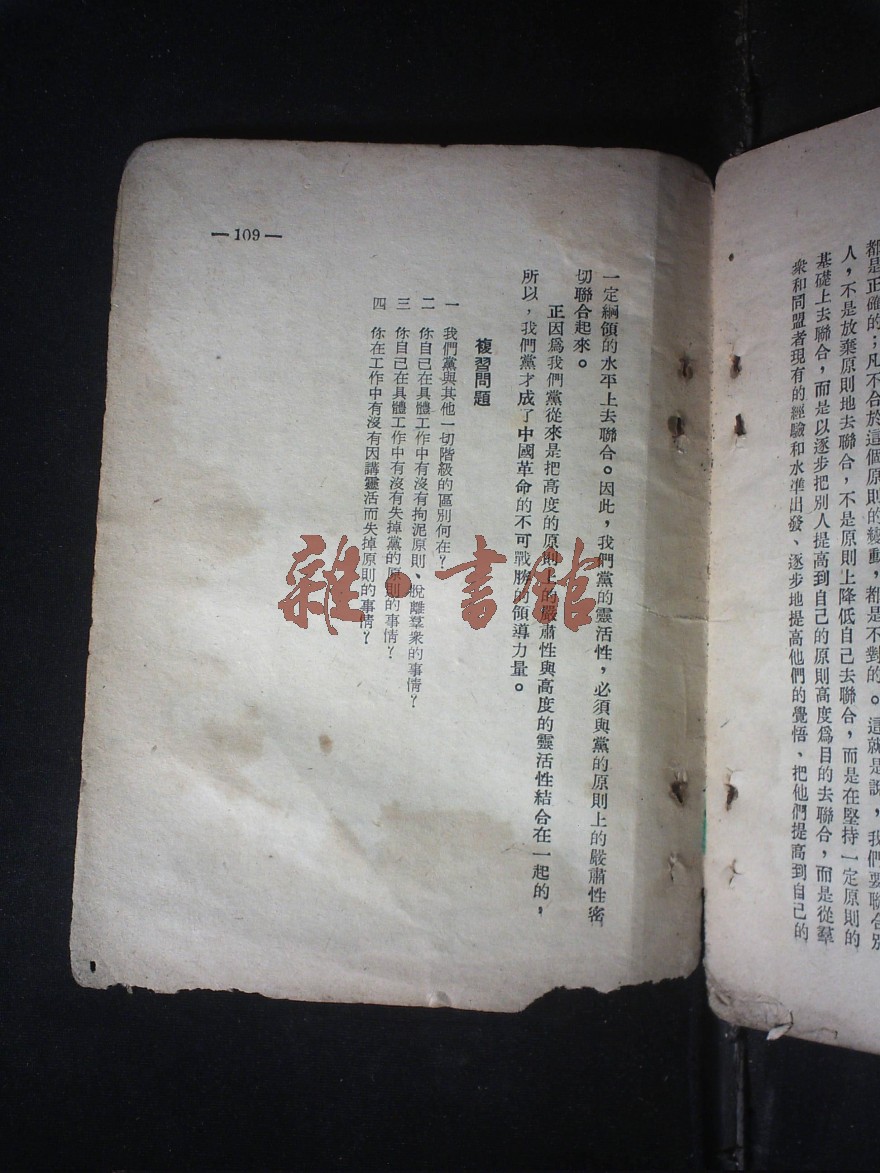 都是正確的；凡不合於這個原則的變動，都是不對的。這就是說，我們要聯合別
人，不是放棄原則地去聯合，不是原則上降低自己去聯合，而是在堅持一定原則的
基礎上去聯合，而是以逐步把別人提高到自己的原則高度爲目的去聯合，而是從羣
衆和同盟者現有的經驗和水準出發、逐步地提高他們的覺悟、把他們提高到自己的
一定綱領的水平上去聯合。因此，我們黨的靈活性，必須與黨的原則上的嚴肅性密
切聯合起來。
正因爲我們黨從來是把高度的原則上的嚴肅性與高度的靈活性結合在一起的，
所以，我們黨才成了中國革命的不可戰勝的領導力量。
複習問題
一 我們黨與其他一切階級的區別何在？
二 你自己在具體工作中有沒有拘泥原則、脫離羣衆的事情？
三 你自己在具體工作中有沒有失掉黨的原則的事情？
四 你在工作中有沒有因講靈活而失掉原則的事情？
—109—
雜·書館